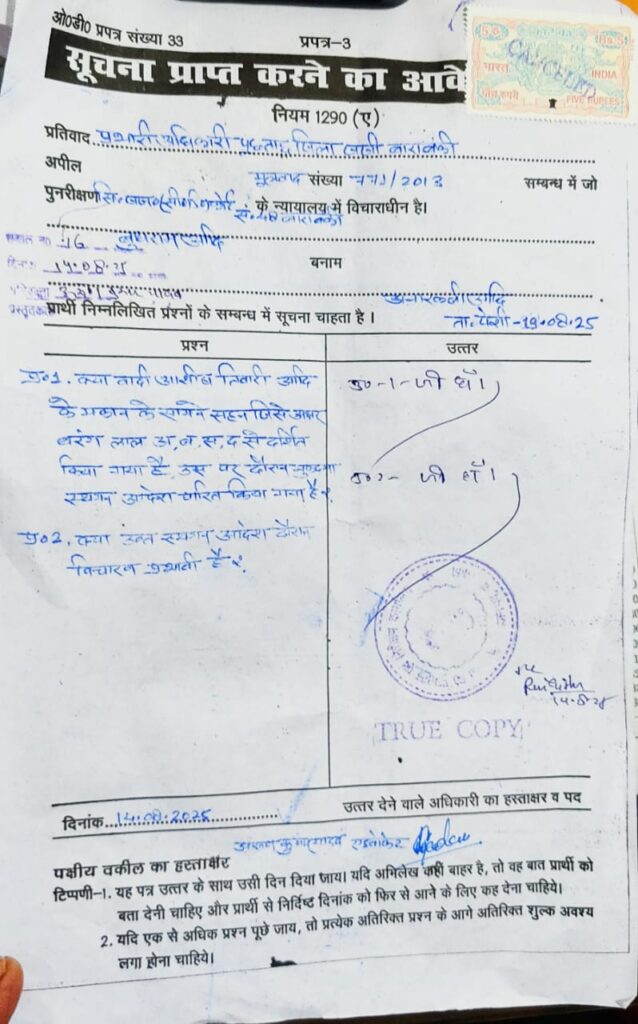 ओ०डी० प्रपत्र संख्या 33
प्रपत्र-3
5रु
Rs.5
CANCELLED
भारत
INDIA
FIVE RUPEES
सूचना प्राप्त करने का आवे
नियम 1290 (ए)
प्रतिवाद प्रभारी अधिकारी
अपील
संख्या 771/2013 सम्बन्ध में जो
पुनरीक्षण के न्यायालय में विचाराधीन है।
16
दिनांक 14.08.25
बनाम
प्रार्थी निम्नलिखित प्रश्नों के सम्बन्ध में सूचना चाहता है।
ता. पेशी-19.08.25
प्रश्न
उत्तर
प्र०1. क्या वादी आशीष तिवारी आदि
के मकान के सामने सहन जिसे अक्षर
बरंग लाल अ, ब, स, द से दर्शित
किया गया है, उस पर दौरान मुकदमा
स्थगन आदेश पारित किया गया है?
उ०-1- जी हाँ।
प्र०2. क्या उक्त स्थगन आदेश दौरान
विचारण प्रभावी है?
उ०2- जी हाँ।
14-8-25
TRUE COPY
दिनांक 14.08.2025
उत्तर देने वाले अधिकारी का हस्ताक्षर व पद
एडवोकेट
पक्षीय वकील का हस्ताक्षर
टिप्पणी-1. यह पत्र उत्तर के साथ उसी दिन दिया जाय। यदि अभिलेख कहीं बाहर है, तो वह बात प्रार्थी को
बता देनी चाहिए और प्रार्थी से निर्दिष्ट दिनांक को फिर से आने के लिए कह देना चाहिये।
2. यदि एक से अधिक प्रश्न पूछे जाय, तो प्रत्येक अतिरिक्त प्रश्न के आगे अतिरिक्त शुल्क अवश्य
लगा होना चाहिये।